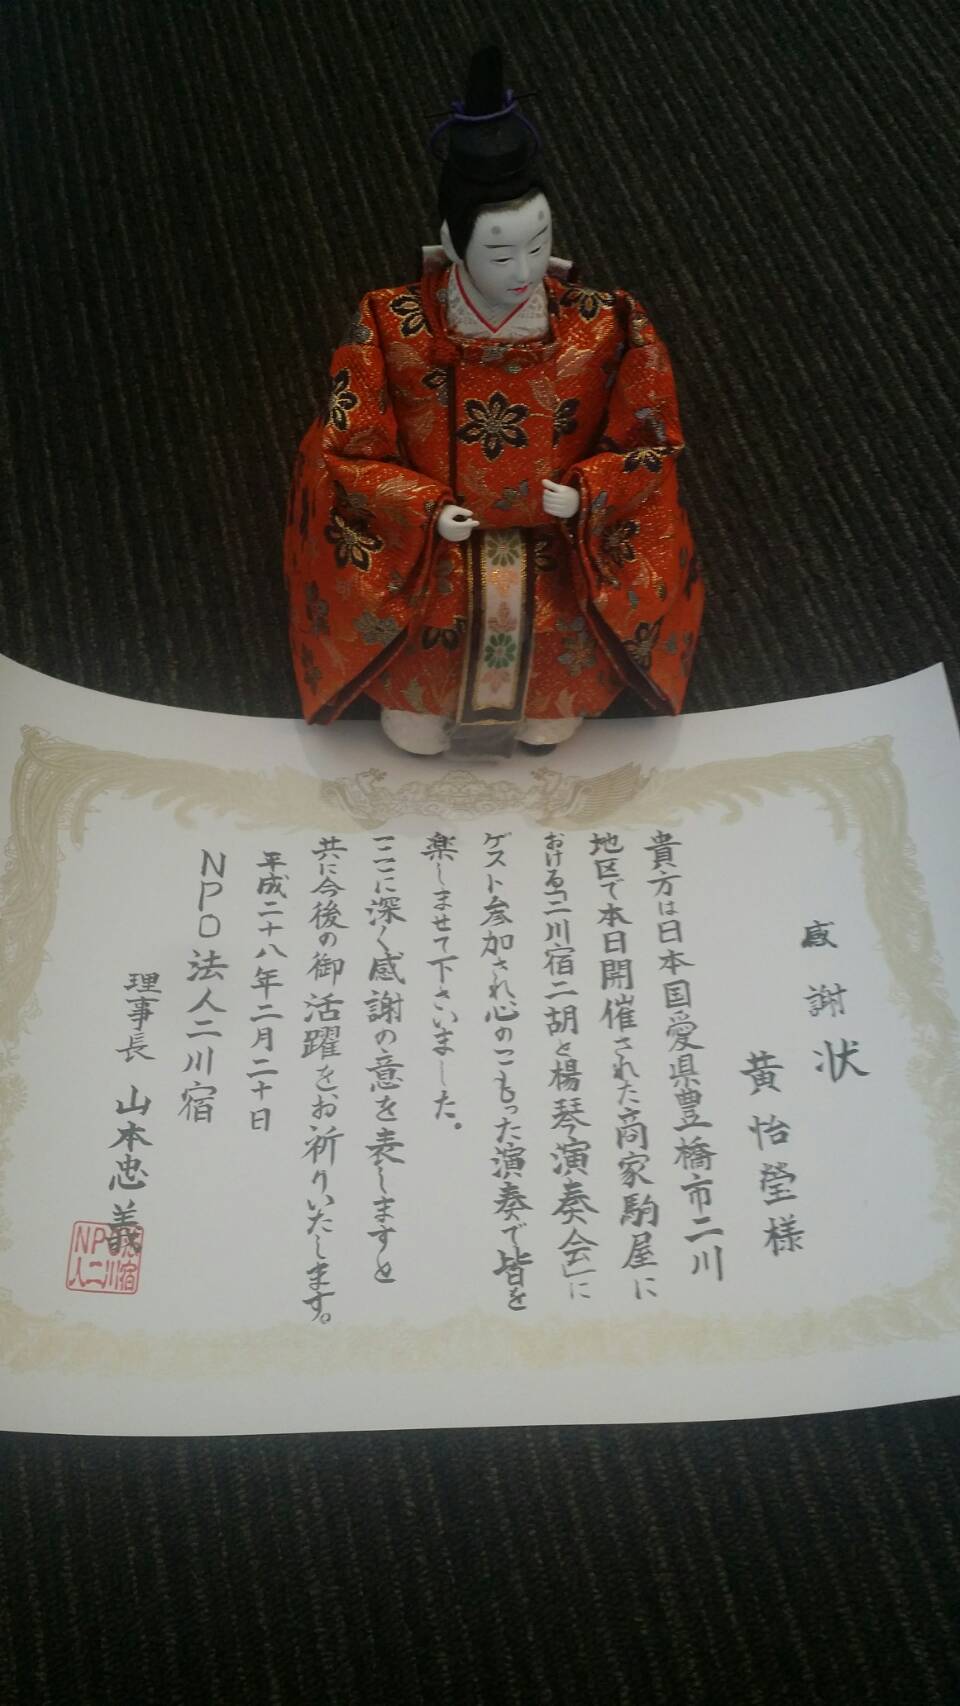 感謝状
黄怡瑩様
貴方は日本国愛県豊橋市二川
地区で本日開催された商家駒屋に
おける「二川宿二胡と楊琴演奏会」に
ゲスト参加され心のこもった演奏で皆を
楽しませて下さいました。
ここに深く感謝の意を表しますと
共に今後の御活躍をお祈りいたします。
平成二十八年二月二十日
NPO法人二川宿
理事長 山本忠義